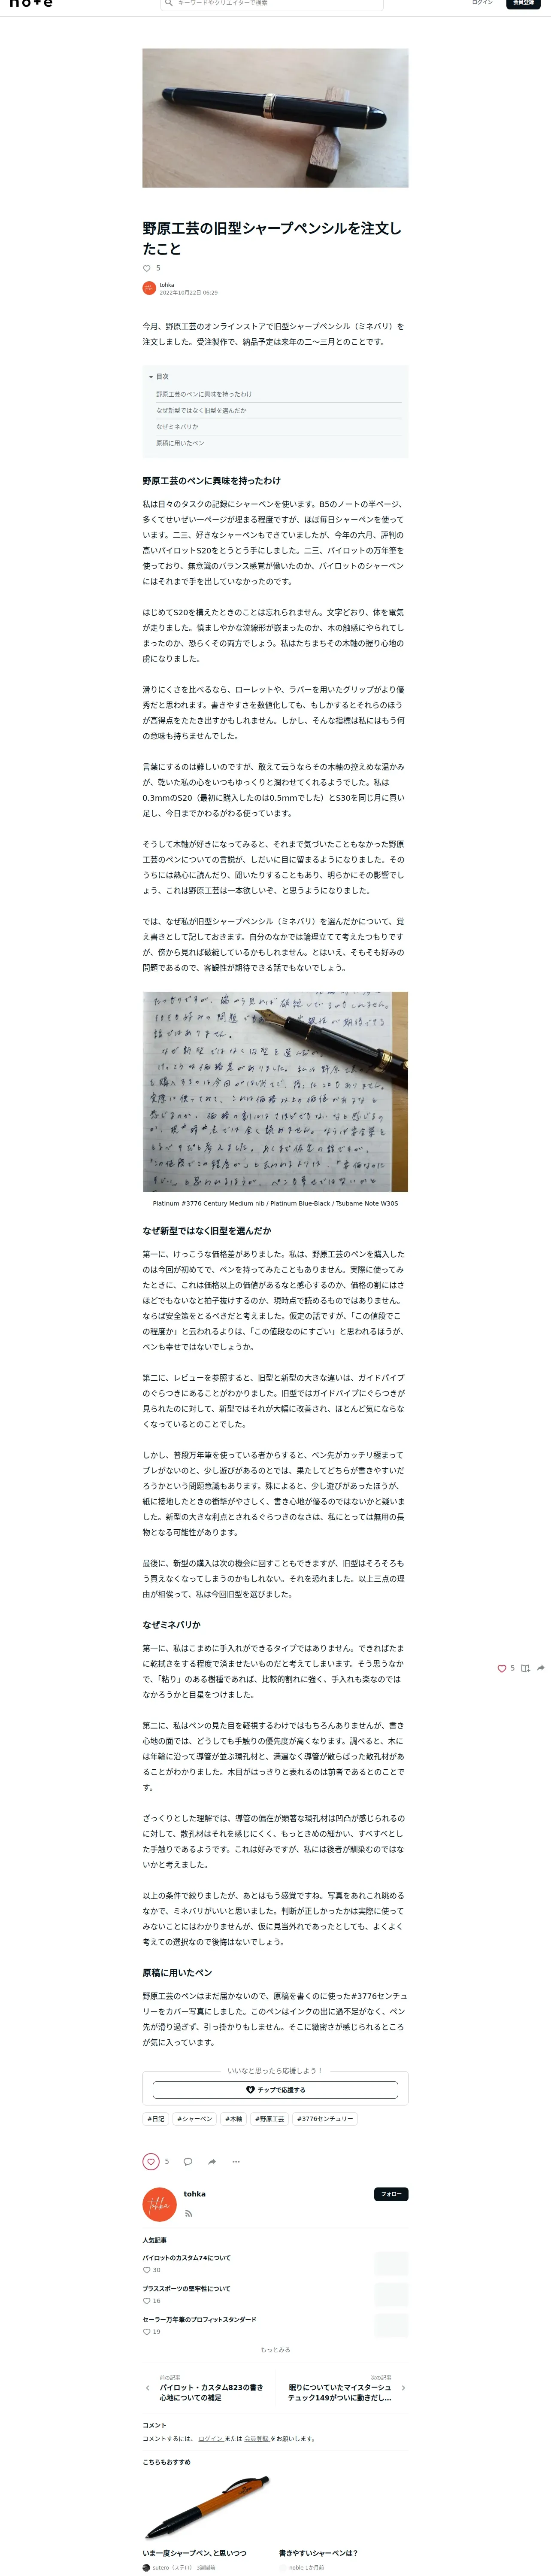 note
キーワードやクリエイターで検索
ログイン
会員登録
野原工芸の旧型シャープペンシルを注文し
たこと
5
tohka
2022年10月22日 06:29
今月、野原工芸のオンラインストアで旧型シャープペンシル（ミネバリ）を
注文しました。受注製作で、納品予定は来年の二〜三月とのことです。
目次
野原工芸のペンに興味を持ったわけ
なぜ新型ではなく旧型を選んだか
なぜミネバリか
原稿に用いたペン
野原工芸のペンに興味を持ったわけ
私は日々のタスクの記録にシャーペンを使います。B5のノートの半ページ、
多くてせいぜい一ページが埋まる程度ですが、ほぼ毎日シャーペンを使って
います。二三、好きなシャーペンもできていましたが、今年の六月、評判の
高いパイロットS20をとうとう手にしました。二三、パイロットの万年筆を
使っており、無意識のバランス感覚が働いたのか、パイロットのシャーペン
にはそれまで手を出していなかったのです。
はじめてS20を構えたときのことは忘れられません。文字どおり、体を電気
が走りました。慎ましやかな流線形が嵌まったのか、木の触感にやられてし
まったのか、恐らくその両方でしょう。私はたちまちその木軸の握り心地の
虜になりました。
滑りにくさを比べるなら、ローレットや、ラバーを用いたグリップがより優
秀だと思われます。書きやすさを数値化しても、もしかするとそれらのほう
が高得点をたたき出すかもしれません。しかし、そんな指標は私にはもう何
の意味も持ちませんでした。
言葉にするのは難しいのですが、敢えて云うならその木軸の控えめな温かみ
が、乾いた私の心をいつもゆっくりと潤わせてくれるようでした。私は
0.3mmのS20（最初に購入したのは0.5mmでした）とS30を同じ月に買い
足し、今日までかわるがわる使っています。
そうして木軸が好きになってみると、それまで気づいたこともなかった野原
工芸のペンについての言説が、しだいに目に留まるようになりました。その
うちには熱心に読んだり、聞いたりすることもあり、明らかにその影響でし
ょう、これは野原工芸は一本欲しいぞ、と思うようになりました。
では、なぜ私が旧型シャープペンシル（ミネバリ）を選んだかについて、覚
え書きとして記しておきます。自分のなかでは論理立てて考えたつもりです
が、傍から見れば破綻しているかもしれません。とはいえ、そもそも好みの
問題であるので、客観性が期待できる話でもないでしょう。
Platinum #3776 Century Medium nib / Platinum Blue-Black / Tsubame Note W30S
なぜ新型ではなく旧型を選んだか
第一に、けっこうな価格差がありました。私は、野原工芸のペンを購入した
のは今回が初めてで、ペンを持ってみたこともありません。実際に使ってみ
たときに、これは価格以上の価値があるなと感心するのか、価格の割にはさ
ほどでもないなと拍子抜けするのか、現時点で読めるものではありません。
ならば安全策をとるべきだと考えました。仮定の話ですが、「この値段でこ
の程度か」と云われるよりは、「この値段なのにすごい」と思われるほうが、
ペンも幸せではないでしょうか。
第二に、レビューを参照すると、旧型と新型の大きな違いは、ガイドパイプ
のぐらつきにあることがわかりました。旧型ではガイドパイプにぐらつきが
見られたのに対して、新型ではそれが大幅に改善され、ほとんど気にならな
くなっているとのことでした。
しかし、普段万年筆を使っている者からすると、ペン先がカッチリ極まって
ブレがないのと、少し遊びがあるのとでは、果たしてどちらが書きやすいだ
ろうかという問題意識もあります。殊によると、少し遊びがあったほうが、
紙に接地したときの衝撃がやさしく、書き心地が優るのではないかと疑いま
した。新型の大きな利点とされるぐらつきのなさは、私にとっては無用の長
物となる可能性があります。
最後に、新型の購入は次の機会に回すこともできますが、旧型はそろそろも
う買えなくなってしまうのかもしれない。それを恐れました。以上三点の理
由が相俟って、私は今回旧型を選びました。
なぜミネバリか
第一に、私はこまめに手入れができるタイプではありません。できればたま
に乾拭きをする程度で済ませたいものだと考えてしまいます。そう思うなか
で、「粘り」のある樹種であれば、比較的割れに強く、手入れも楽なのでは
なかろうかと目星をつけました。
第二に、私はペンの見た目を軽視するわけではもちろんありませんが、書き
心地の面では、どうしても手触りの優先度が高くなります。調べると、木に
は年輪に沿って導管が並ぶ環孔材と、満遍なく導管が散らばった散孔材があ
ることがわかりました。木目がはっきりと表れるのは前者であるとのことで
す。
ざっくりとした理解では、導管の偏在が顕著な環孔材は凹凸が感じられるの
に対して、散孔材はそれを感じにくく、もっときめの細かい、すべすべとし
た手触りであるようです。これは好みですが、私には後者が馴染むのではな
いかと考えました。
以上の条件で絞りましたが、あとはもう感覚ですね。写真をあれこれ眺める
なかで、ミネバリがいいと思いました。判断が正しかったかは実際に使って
みないことにはわかりませんが、仮に見当外れであったとしても、よくよく
考えての選択なので後悔はないでしょう。
原稿に用いたペン
野原工芸のペンはまだ届かないので、原稿を書くのに使った#3776センチュ
リーをカバー写真にしました。このペンはインクの出に過不足がなく、ペン
先が滑り過ぎず、引っ掛かりもしません。そこに緻密さが感じられるところ
が気に入っています。
いいなと思ったら応援しよう！
チップで応援する
#日記
#シャーペン
#木軸
#野原工芸
#3776センチュリー
5
tohka
フォロー
人気記事
パイロットのカスタム74について
30
プラススポーツの堅牢性について
16
セーラー万年筆のプロフィットスタンダード
19
もっとみる
前の記事
パイロット・カスタム823の書き
心地についての補足
次の記事
眠りについていたマイスターシュ
テュック149がついに動きだし...
コメント
コメントするには、 ログイン または 会員登録 をお願いします。
こちらもおすすめ
いま一度シャープペン、と思いつつ
sutero（ステロ） 3週間前
書きやすいシャーペンは？
noble 1か月前
5